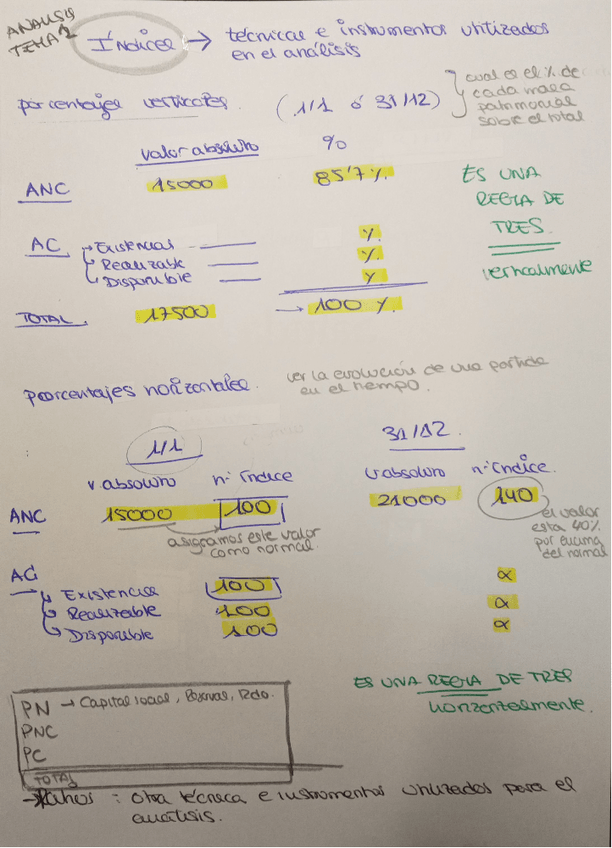 ANALISIS
TEMA 2
Índices → técnicas e instrumentos utilizados
en el análisis
porcentajes verticales. (1/1 ó 31/12)
cual es el % de
cada masa
patrimonial
sobre el total
valor absoluto %
ANC 15000 85'7 %
AC → Existencias %
→ Realizable %
→ Disponible %
TOTAL 17500 → 100 %
ES UNA
REGLA DE
TRES
verticalmente
porcentajes horizontales. ver la evolución de una partida
en el tiempo.
1/1 31/12
v absoluto nº índice v absoluto nº índice
ANC 15000 100 21000 140
asignamos este valor
como normal.
el valor
esta 40%
por encima
del normal
AC
→ Existencias 100 α
→ Realizable 100 α
→ Disponible 100 α
ES UNA REGLA DE TRES
horizontalmente.
PN → Capital social, Reservas, Rdo.
PNC
PC
TOTAL
→ Ratios : otra técnica e instrumentos utilizados para el
análisis.